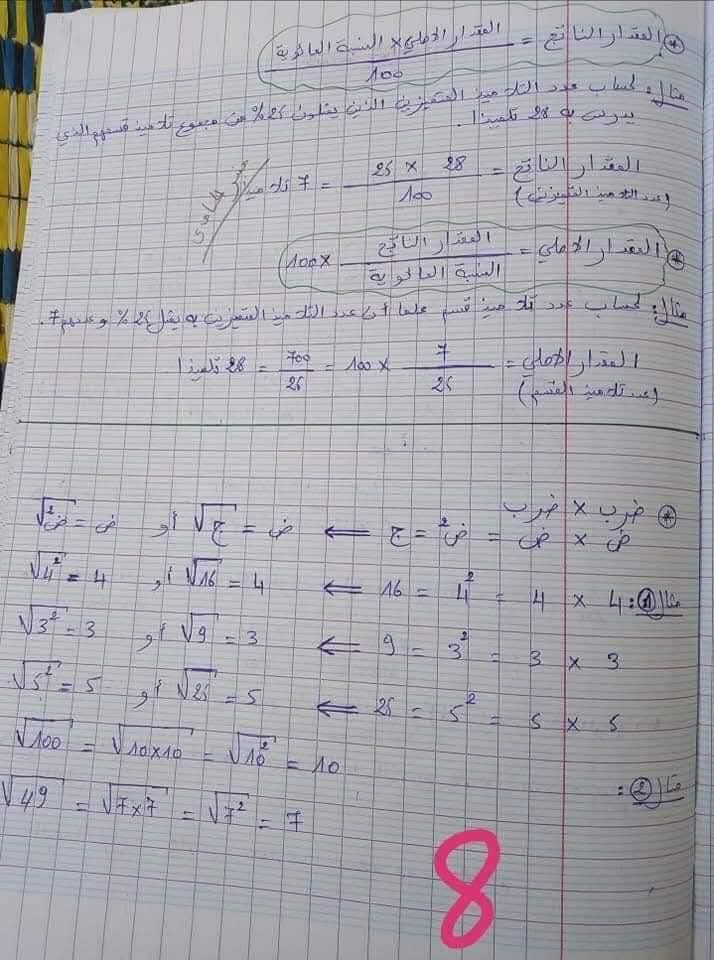 * المقدار الناتج = المقدار الأصلي × النسبة المائوية / 100
مثال: لحساب عدد التلاميذ المتميزين الذين يمثلون 25% من مجموع تلاميذ قسمهم الذي
يدرس به 28 تلميذا.
المقدار الناتج = 28 × 25 / 100 = 7 تلاميذ
(عدد التلاميذ المتميزين)
* المقدار الأصلي = المقدار الناتج / النسبة المائوية × 100
مثال: لحساب عدد تلاميذ قسم علما أن عدد التلاميذ المتميزين به يمثل 25% وعددهم 7.
المقدار الأصلي = 7 / 25 × 100 = 700 / 25 = 28 تلميذا
(عدد تلاميذ القسم)
* ضرب × ضرب
ض × ض = ض² = ج ⇐ ض = √ج أو ض = √ض²
مثال 1: 4 × 4 = 4² = 16 ⇐ √16 = 4 أو √4² = 4
3 × 3 = 3² = 9 ⇐ √9 = 3 أو √3² = 3
5 × 5 = 5² = 25 ⇐ √25 = 5 أو √5² = 5
مثال 2:
√100 = √10×10 = √10² = 10
√49 = √7×7 = √7² = 7
8